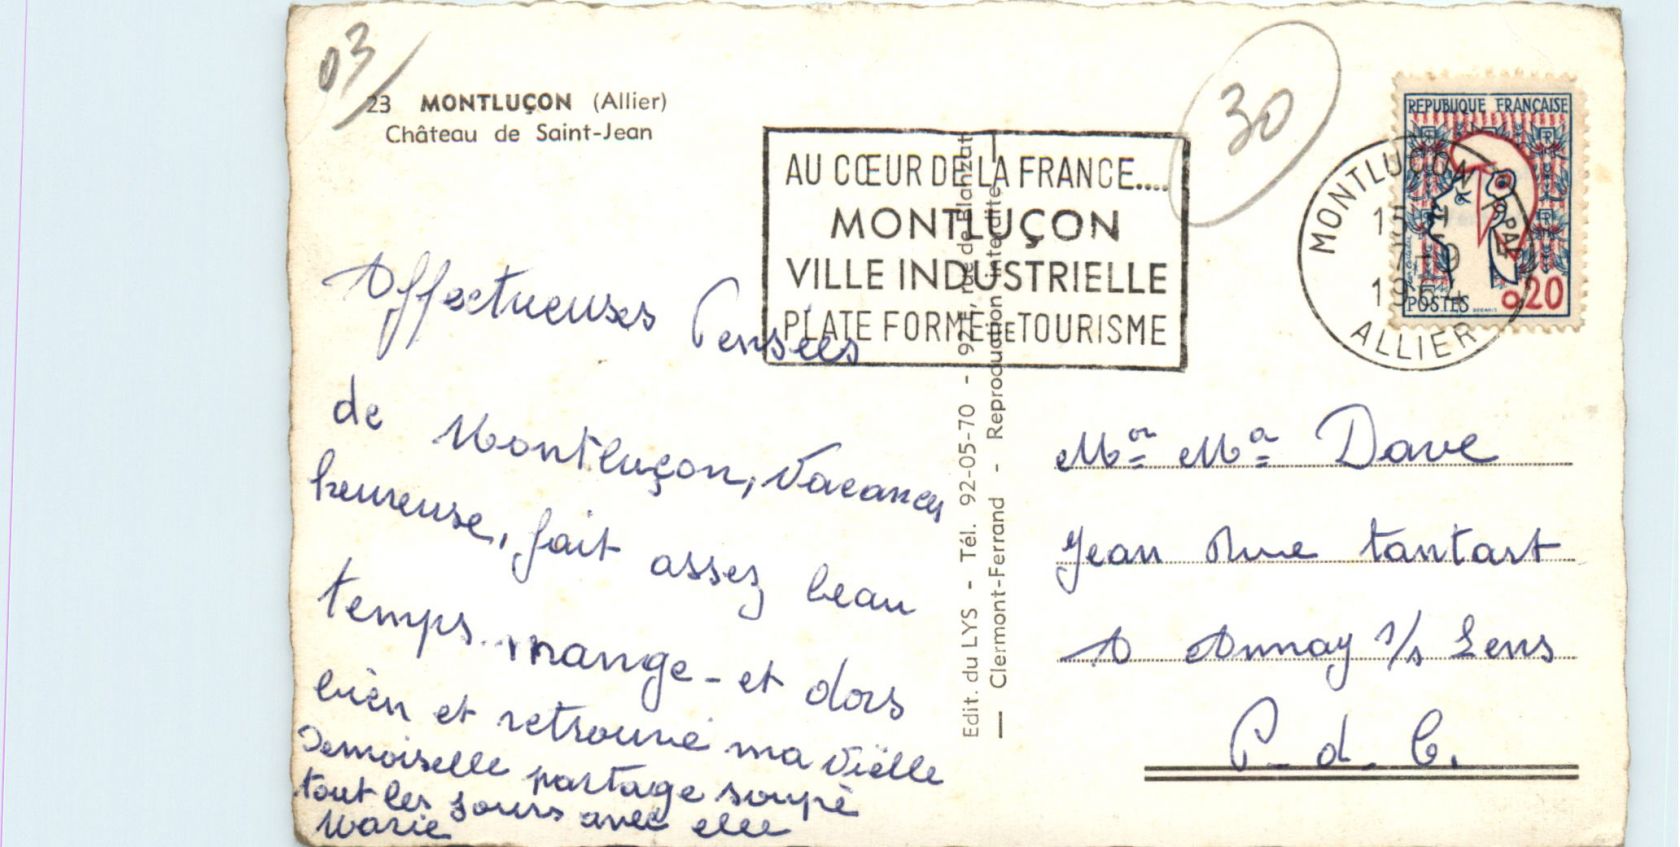 03
23 MONTLUÇON (Allier)
Château de Saint-Jean
30
AU CŒUR DE LA FRANCE....
MONTLUÇON
VILLE INDUSTRIELLE
PLATE FORME DE TOURISME
REPUBLIQUE FRANÇAISE
POSTES 0,20
MONTLUÇON PPAL
ALLIER
Affectueuses Pensées
de Montluçon, Vacances
heureuse, fait assez beau
temps. mange - et dors
bien et retrouvé ma vièlle
Demoiselle partage soupè
tout les jours avec elle
Marie
Edit. du LYS - Tél. 92-05-70 - 92 rue de Blanzat
— Clermont-Ferrand - Reproduction interdite —
Mor Ma Dave
Jean Rue tantart
A Annay s/s Lens
P. d. C.